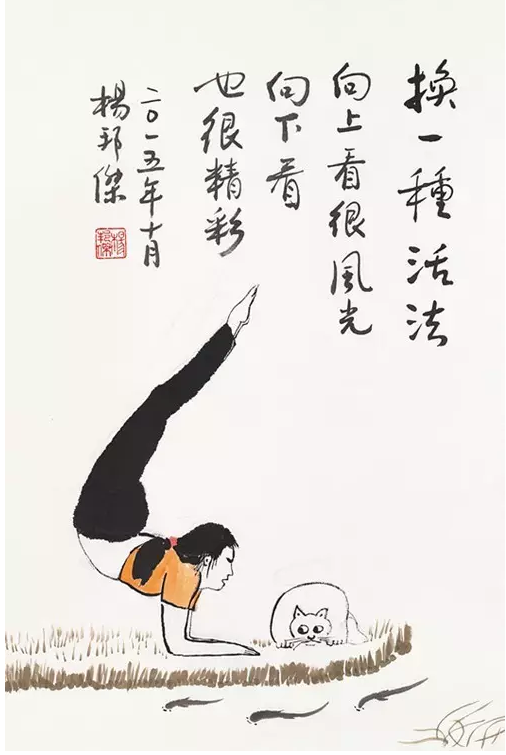 換一種活法
向上看很風光
向下看
也很精彩
二〇一五年十月
楊邦傑